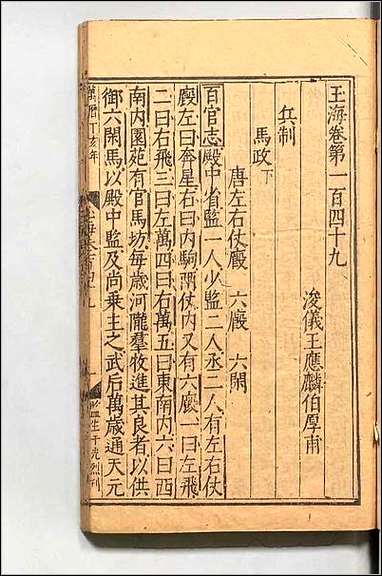 玉海卷第一百四十九
浚儀王應麟伯厚甫
兵制
馬政下
唐左右仗廄 六廄 六閑
百官志殿中省監一人少監二人丞二人有左右仗
廄左曰奔星右曰內駒兩仗內又有六廄一曰左飛
二曰右飛三曰左萬四曰右萬五曰東南內六曰西
南內園苑有官馬坊每歲河隴羣牧進其良者以供
御六閑馬以殿中監及尚乘主之武后萬歲通天元
丁亥年
玉海卷百四九
一
監生
刊